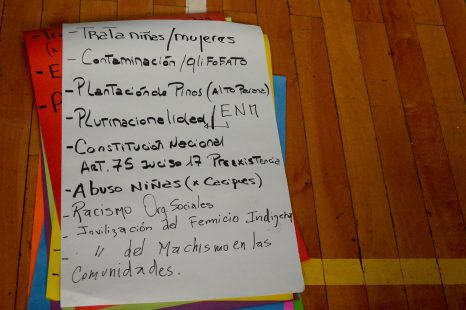 - Trata niñas/mujeres
- Contaminación/gliFoFATO
- Plantación de Pinos (Alto Paraná)
- Plurinacionalidad/ENM
- Constitución Nacional
Art. 75 Inciso 17 Preexistencia
- Abuso Niñas (x Caciques)
- Racismo Org. Sociales
- Invilización del Femicio Indígena
" del Machismo en las
Comunidades.